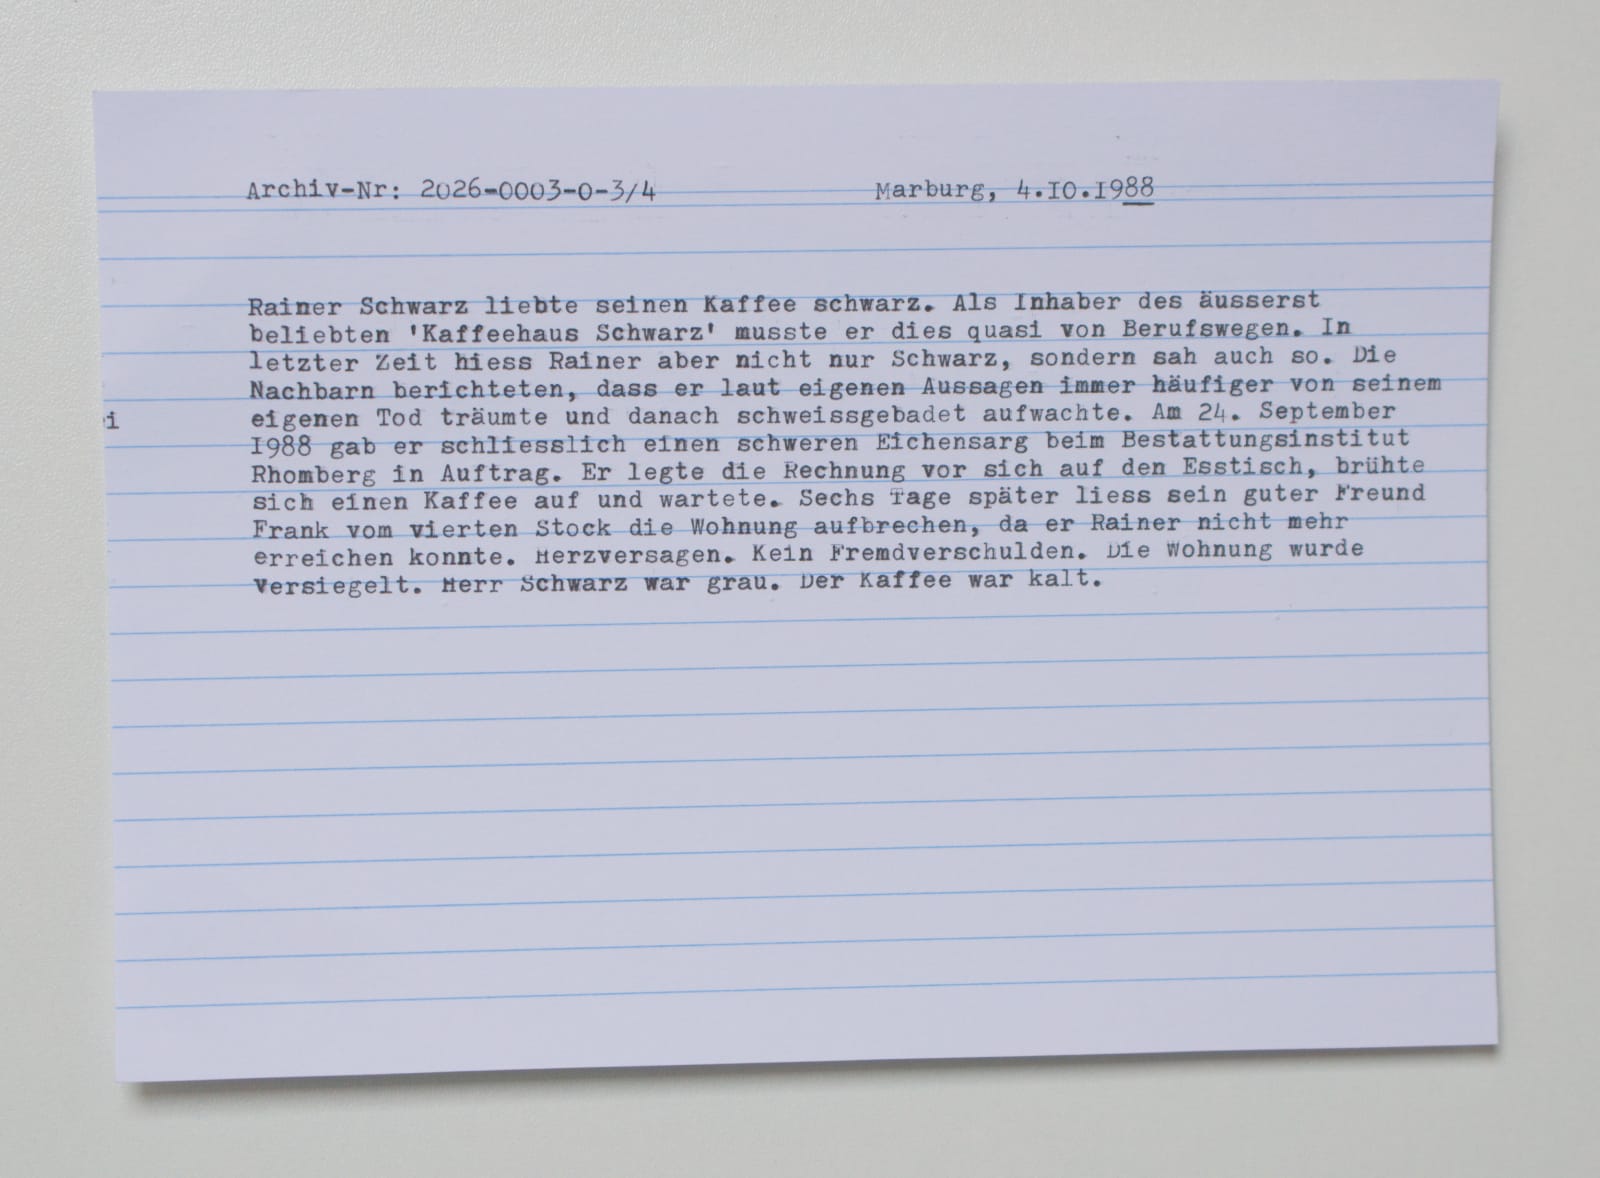 Archiv-Nr: 2026-0003-0-3/4 Marburg, 4.10.1988
Rainer Schwarz liebte seinen Kaffee schwarz. Als Inhaber des äusserst
beliebten 'Kaffeehaus Schwarz' musste er dies quasi von Berufswegen. In
letzter Zeit hiess Rainer aber nicht nur Schwarz, sondern sah auch so. Die
Nachbarn berichteten, dass er laut eigenen Aussagen immer häufiger von seinem
i
eigenen Tod träumte und danach schweissgebadet aufwachte. Am 24. September
1988 gab er schliesslich einen schweren Eichensarg beim Bestattungsinstitut
Rhomberg in Auftrag. Er legte die Rechnung vor sich auf den Esstisch, brühte
sich einen Kaffee auf und wartete. Sechs Tage später liess sein guter Freund
Frank vom vierten Stock die Wohnung aufbrechen, da er Rainer nicht mehr
erreichen konnte. Herzversagen. Kein Fremdverschulden. Die Wohnung wurde
versiegelt. Herr Schwarz war grau. Der Kaffee war kalt.